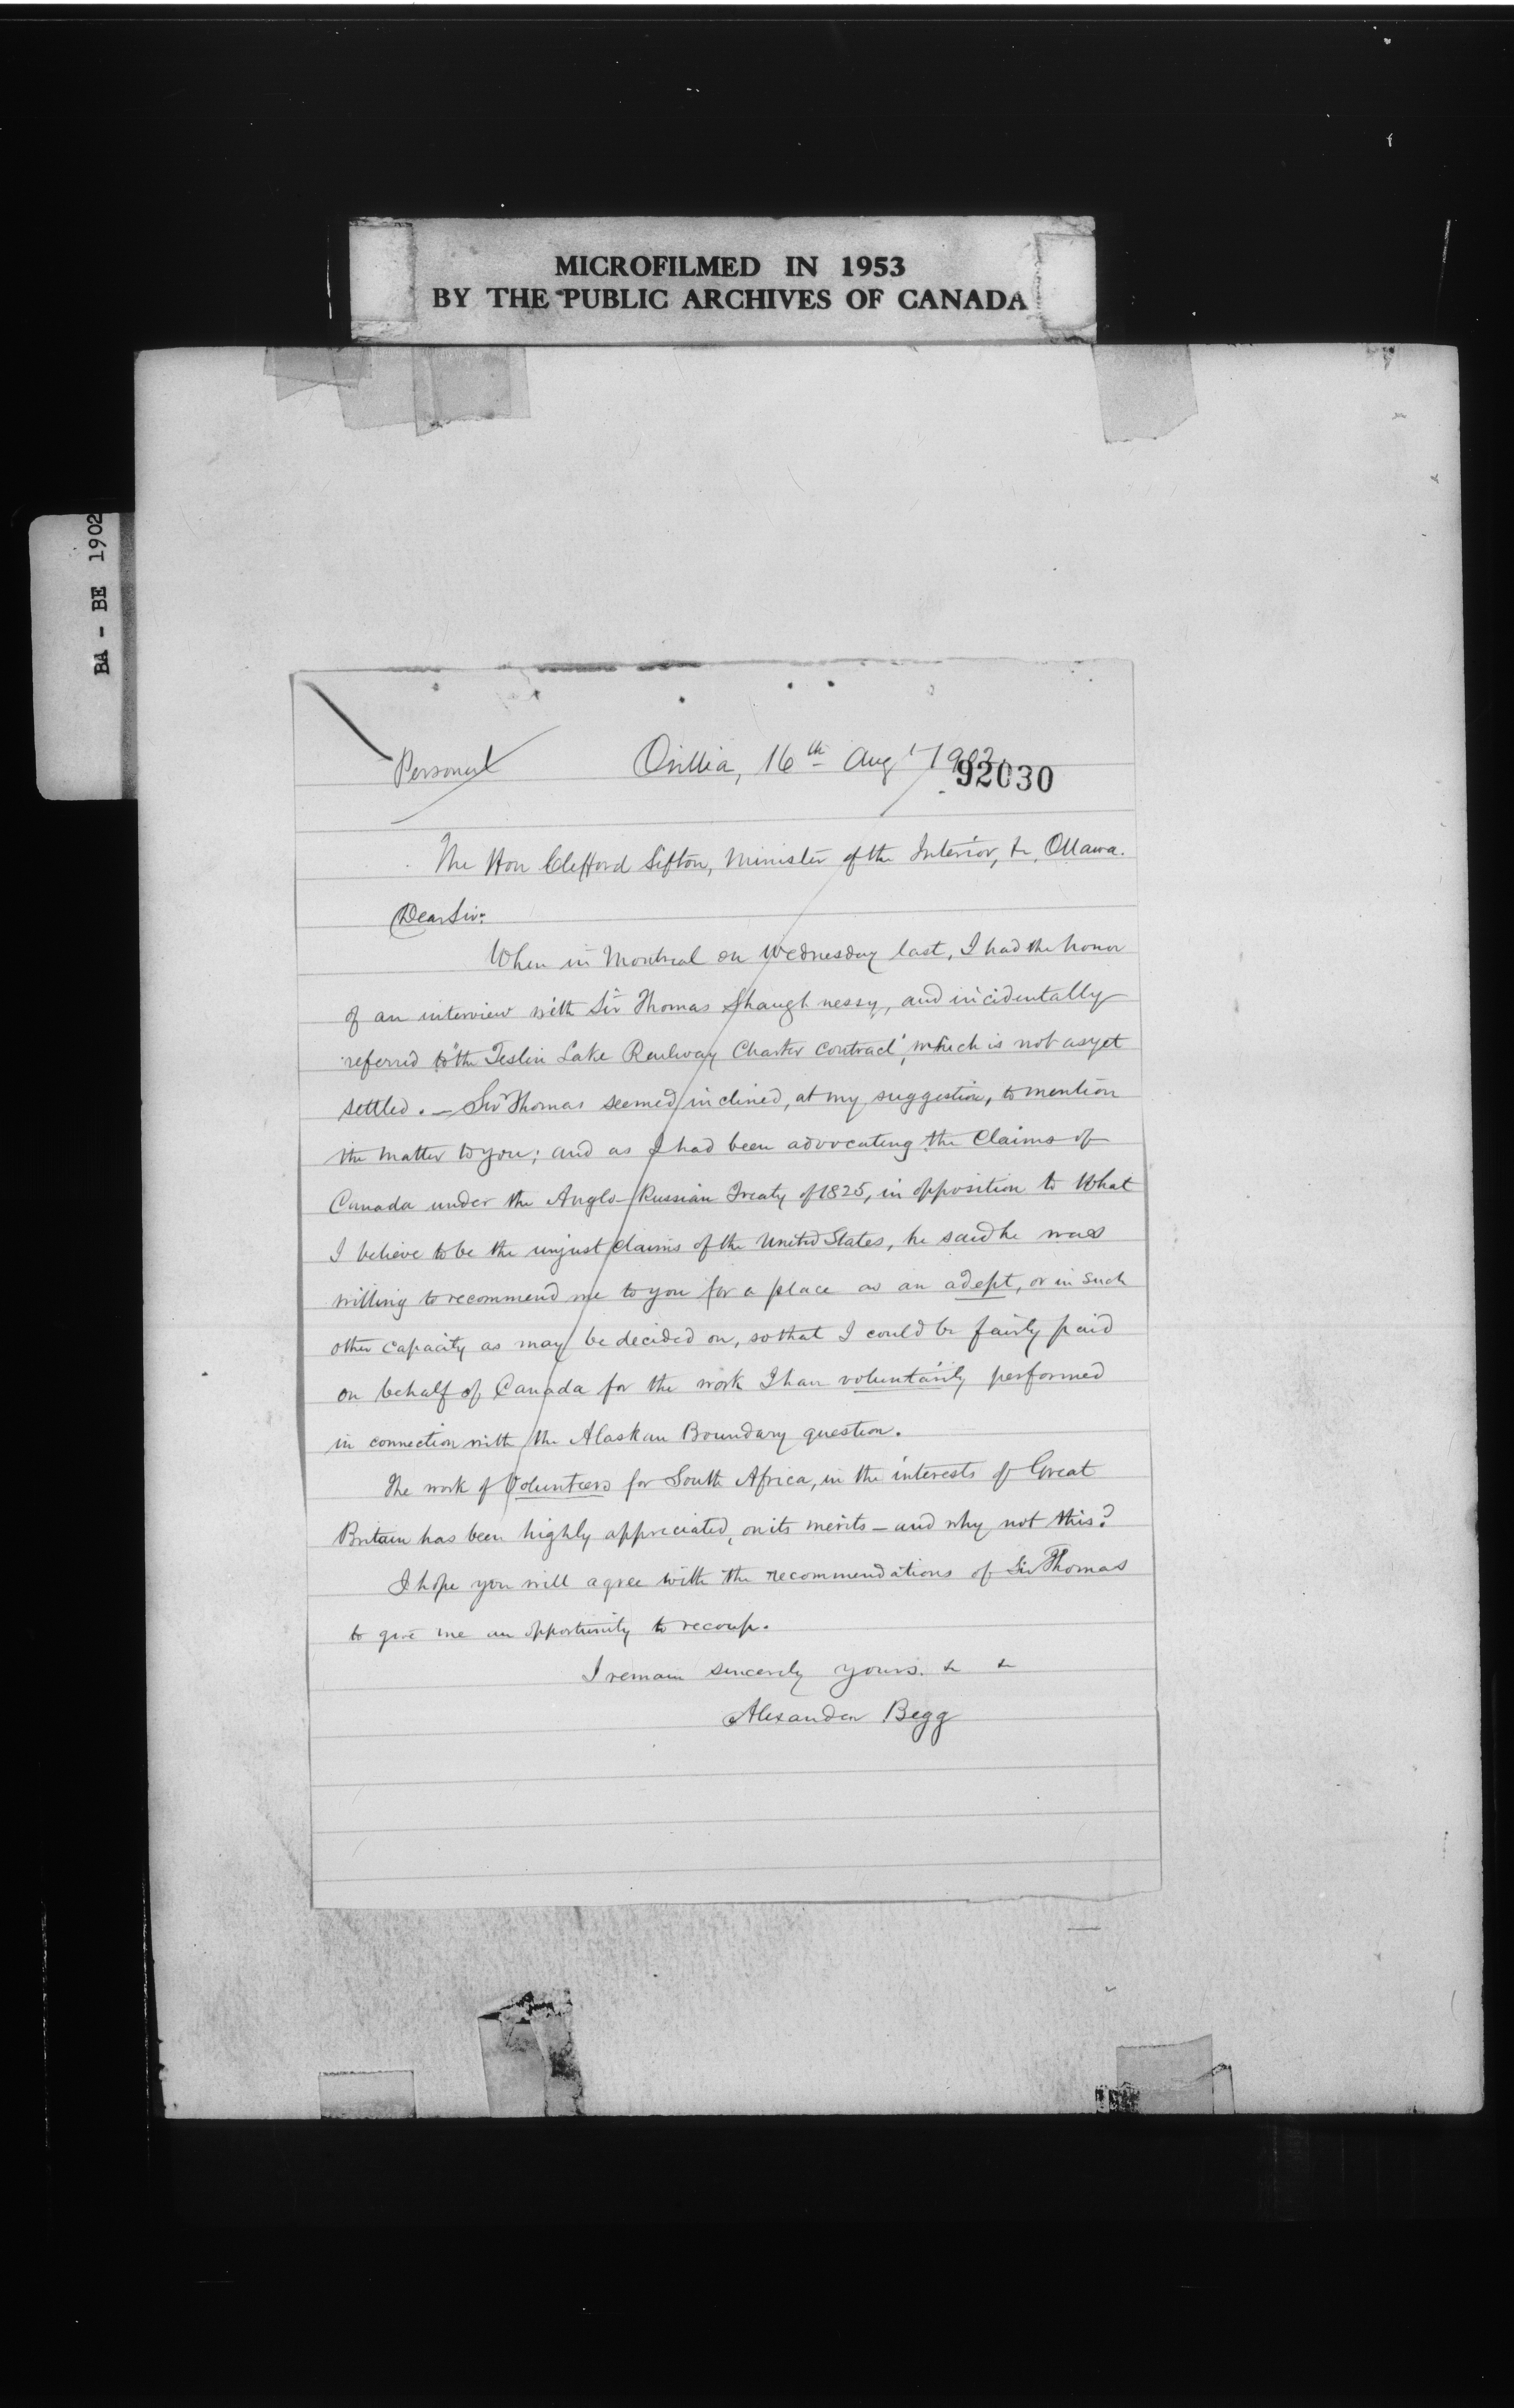 MICROFILMED IN 1953
BY THE PUBLIC ARCHIVES OF CANADA
BA - BE 1902
Personal
Orillia, 16th Augt 1902.
92030
The Hon Clifford Sifton, Minister of the Interior, &c, Ottawa.
Dear Sir:
When in Montreal on Wednesday last, I had the honor
of an interview with Sir Thomas Shaughnessy, and incidentally
referred to "the Teslin Lake Railway Charter contract", which is not as yet
settled. – Sir Thomas seemed inclined, at my suggestion, to mention
the matter to you; and as I had been advocating the Claims of
Canada under the Anglo-Russian Treaty of 1825, in opposition to what
I believe to be the unjust claims of the United States, he said he was
willing to recommend me to you for a place as an adept, or in such
other capacity as may be decided on, so that I could be fairly paid
on behalf of Canada for the work I have voluntarily performed
in connection with the Alaskan Boundary question.
The work of Volunteers for South Africa, in the interests of Great
Britain has been highly appreciated, on its merits – and why not this?
I hope you will agree with the recommendations of Sir Thomas
to give me an opportunity to recoup.
I remain sincerely yours. &c &c
Alexander Begg